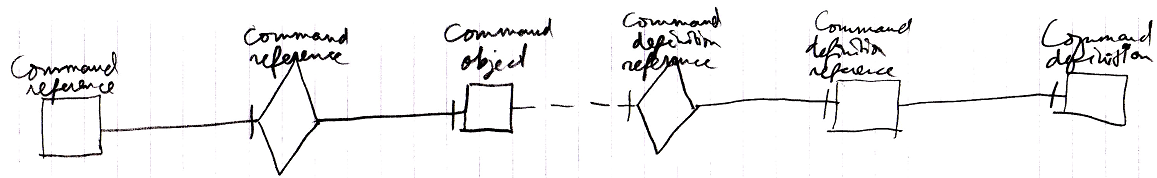 Command
reference
Command
reference
Command
object
Command
definition
reference
Command
definition
reference
Command
definition